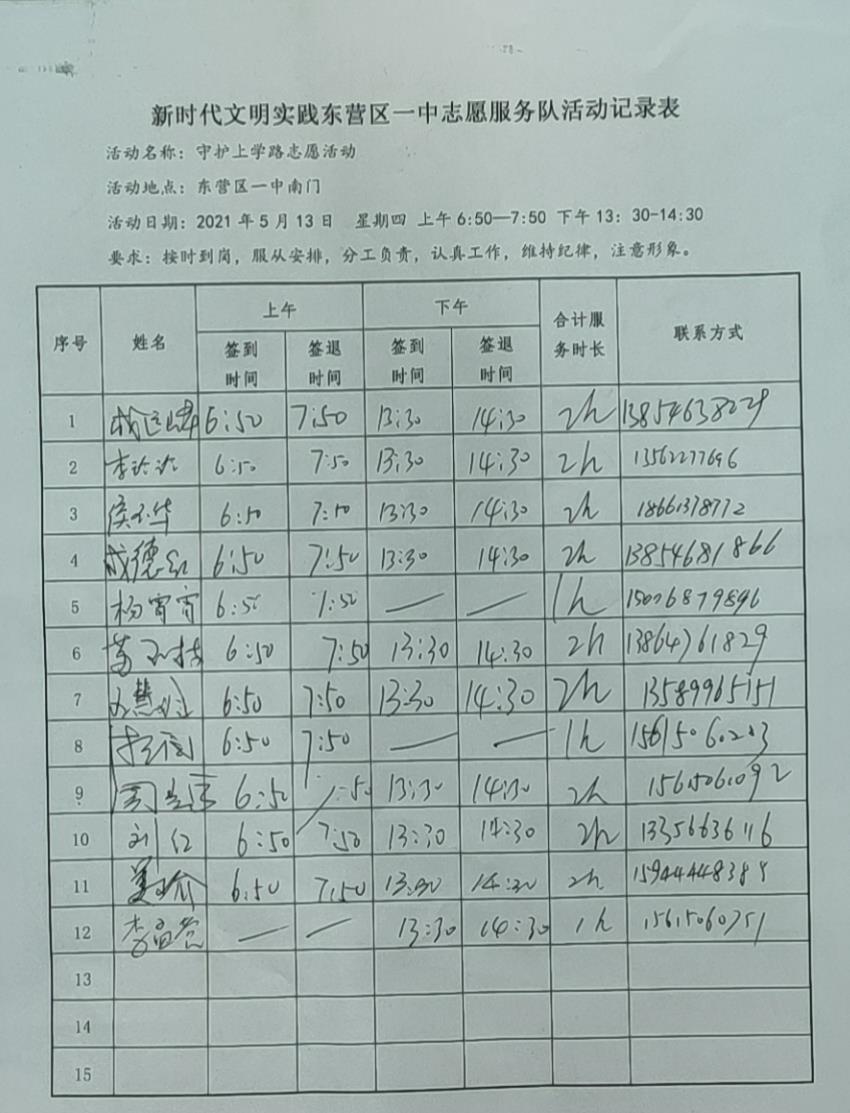 新时代文明实践东营区一中志愿服务队活动记录表
活动名称：守护上学路志愿活动
活动地点：东营区一中南门
活动日期：2021年5月13日 星期四 上午6:50—7:50 下午13:30-14:30
要求：按时到岗，服从安排，分工负责，认真工作，维持纪律，注意形象。
序号 姓名 上午 下午 合计服务时长 联系方式
签到时间 签退时间 签到时间 签退时间
1 6:50 7:50 13:30 14:30 2h 13854638029
2 6:50 7:50 13:30 14:30 2h 13562277696
3 6:50 7:50 13:30 14:30 2h 18661378772
4 成德 6:50 7:50 13:30 14:30 2h 13854681866
5 杨宵宵 6:50 7:50 — — 1h 15076879896
6 6:50 7:50 13:30 14:30 2h 13864761829
7 6:50 7:50 13:30 14:30 2h 13589965151
8 6:50 7:50 — — 1h 15615060203
9 6:50 7:50 13:30 14:30 2h 15615061092
10 刘红 6:50 7:50 13:30 14:30 2h 13356636116
11 6:50 7:50 13:30 14:30 2h
12 — — 13:30 14:30 1h 15615060751
13
14
15